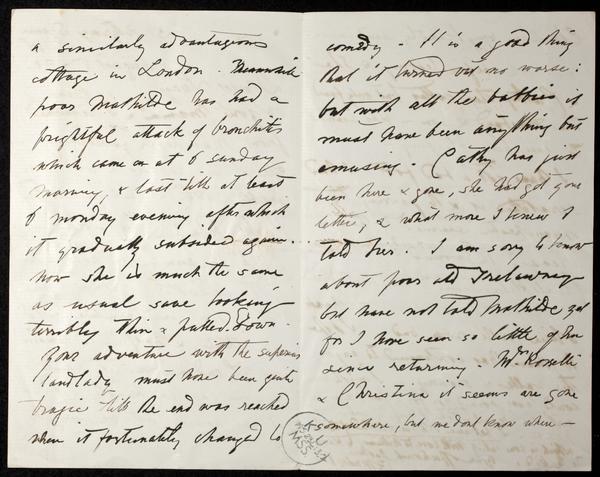 a similarly advantageous
cottage in London. Meanwhile
poor Mathilde has had a
frightful attack of bronchitis
which came on at 6 Sunday
morning, & last till at least
6 monday evening after which
it gradually subsided again...
now she is much the same
as usual save looking
terribly thin & pulled down.
Your adventure with the superior
landlady must have been quite
tragic till the end was reached
when it fortunately changed to
comedy - It is a good thing
that it turned out no worse:
but with all the babbies it
must have been anything but
amusing. Cathy has just
been here & gone, she had got your
letter, & what more I knew I
told her. I am sorry to know
about poor old Trelawney
but have not told Mathilde yet
for I have seen so little of her
since returning. Mrs Rossetti
& Christina it seems are gone
somewhere, but we dont know where -
MSS